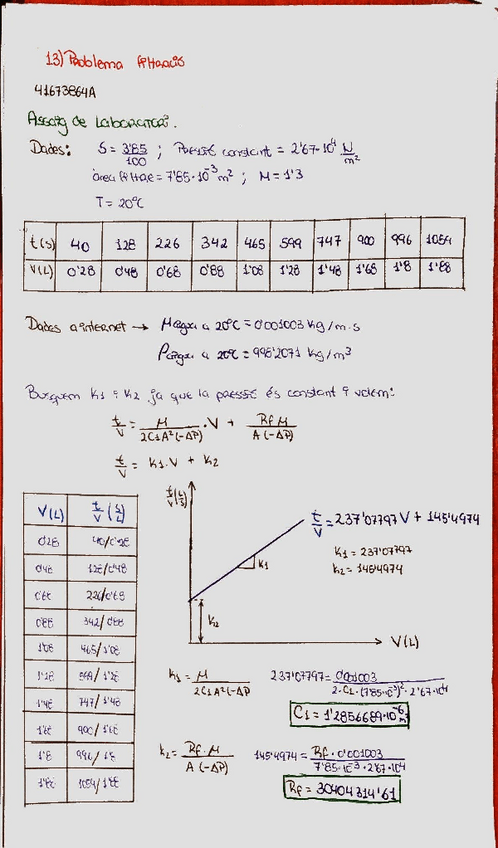 13) Problema filtració
41673864A
Assaig de laboratori.
Dades: S = 3'85/100 ; Pressió constant = 2'67·10⁴ N/m²
àrea filtre = 7'85·10⁻³ m² ; M = 1'3
T = 20ºC
t(s) 40 128 226 342 465 599 747 900 996 1054
V(L) 0'28 0'48 0'68 0'88 1'08 1'28 1'48 1'68 1'8 1'88
Dades a internet → μaigua a 20ºC = 0'001003 kg/m·s
ρaigua a 20ºC = 998'2071 kg/m³
Busquem K1 i K2 ja que la pressió és constant i volem:
t/V = μ/(2C1A²(-ΔP)) · V + Rf μ/(A(-ΔP))
t/V = K1·V + K2
V(L) t/V (s/L)
0'28 40/0'28
0'48 128/0'48
0'68 226/0'68
0'88 342/0'88
1'08 465/1'08
1'28 599/1'28
1'48 747/1'48
1'68 900/1'68
1'8 996/1'8
1'88 1054/1'88
t/V (s/L)
t/V = 237'07797V + 145'4974
K1 = 237'07797
K2 = 145'4974
K1
K2
V(L)
K1 = μ/(2C1A²(-ΔP 237'07797 = 0'001003/(2·C1·(7'85·10⁻³)²·2'67·10⁴
C1 = 1'2856689·10⁻⁶
K2 = Rf·μ/(A(-ΔP)) 145'4974 = Rf·0'001003/(7'85·10⁻³·2'67·10⁴
Rf = 30404314'61